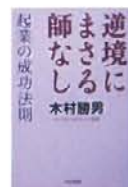 逆境に
まさる
師なし
起業の成功法則
木村勝男